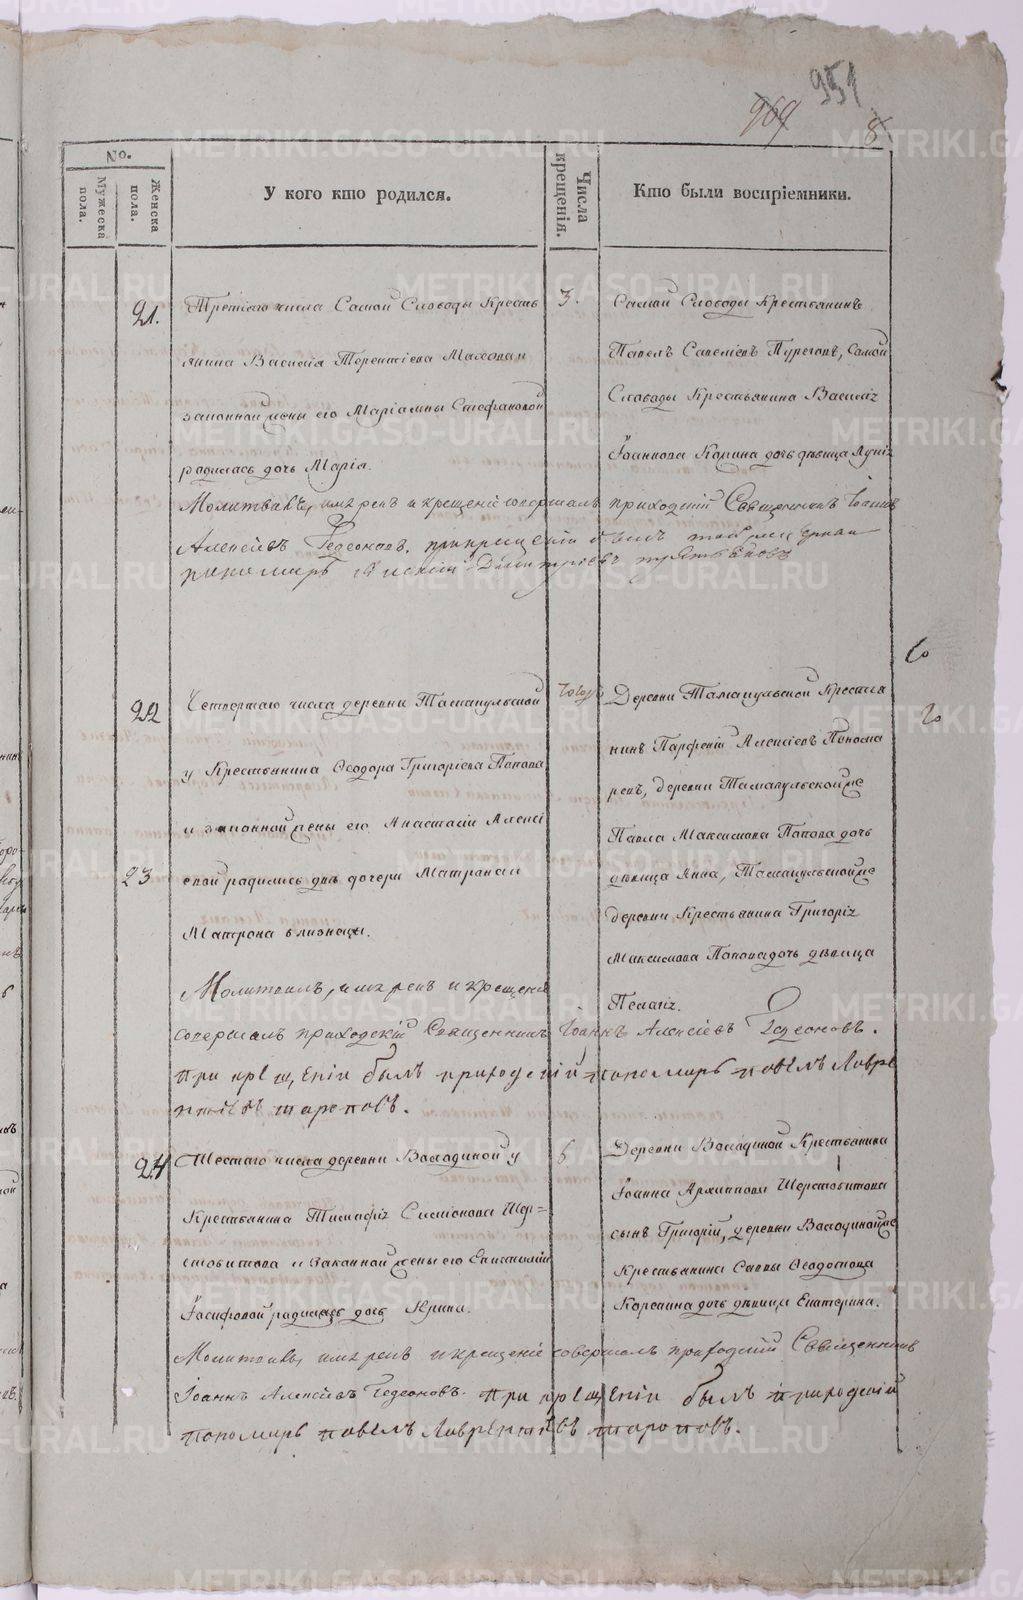 951
969
8
№.
Мужеска пола.
Женска пола.
У кого кто родился.
Числа крещенія.
Кто были воспріемники.
21.
Третьяго числа Самой Слободы Кресть
янина Василія Терентіева
законной жены его Маріамны Стефановой
родилась дочь Марія.
3.
Самой Слободы Крестьянинъ
Павелъ Савеліевъ Самой
Слободы Крестьянина Василія
Іоаннова Калина дочь дѣвица
Молитвовалъ, имя рекъ и крещеніе совершалъ приходскій Священникъ Іоаннъ
Алексѣевъ Гедеоновъ. при крещеніи былъ
пономарь Димитріевъ
22
Четвертаго числа деревни Тамакульской
у Крестьянина Ѳеодора Григоріева Попова
и законной жены его Анастасіи Алексі
23
евой родились двѣ дочери Матрона и
Матрона близнецы.
того жъ
Деревни Тамакульской Крестья
нинъ Парфеній Алексіевъ Понома
ревъ, деревни Тамакульской же
Павла Максимова Попова дочь
дѣвица Анна, Тамакульской же
деревни Крестьянина Григорія
Максимова Попова дочь дѣвица
Пелагія.
Молитвилъ, имя рекъ и крещеніе
совершалъ приходскій Священникъ Іоаннъ Алексіевъ Гедеоновъ.
При крещеніи былъ приходскій пономарь Павелъ Лавре
нтіевъ Тороповъ.
24
Шестаго числа деревни Володиной у
Крестьянина Тимофея Симіонова Шер=
стобитова и законной жены его Епистиміи
Іосифовой родилась дочь Ирина.
6
Деревни Володиной Крестьянина
Іоанна Архиппова Шерстобитова
сынъ Григорій, деревни Володиной же
Крестьянина Саввы Ѳеодотова
дочь дѣвица Екатерина.
Молитвовалъ, имя рекъ и крещеніе совершалъ приходскій Священникъ
Іоаннъ Алексіевъ Гедеоновъ. При крещеніи былъ приходскій
пономарь Павелъ Лаврентіевъ Тороповъ.
METRIKI.GASO-URAL.RU